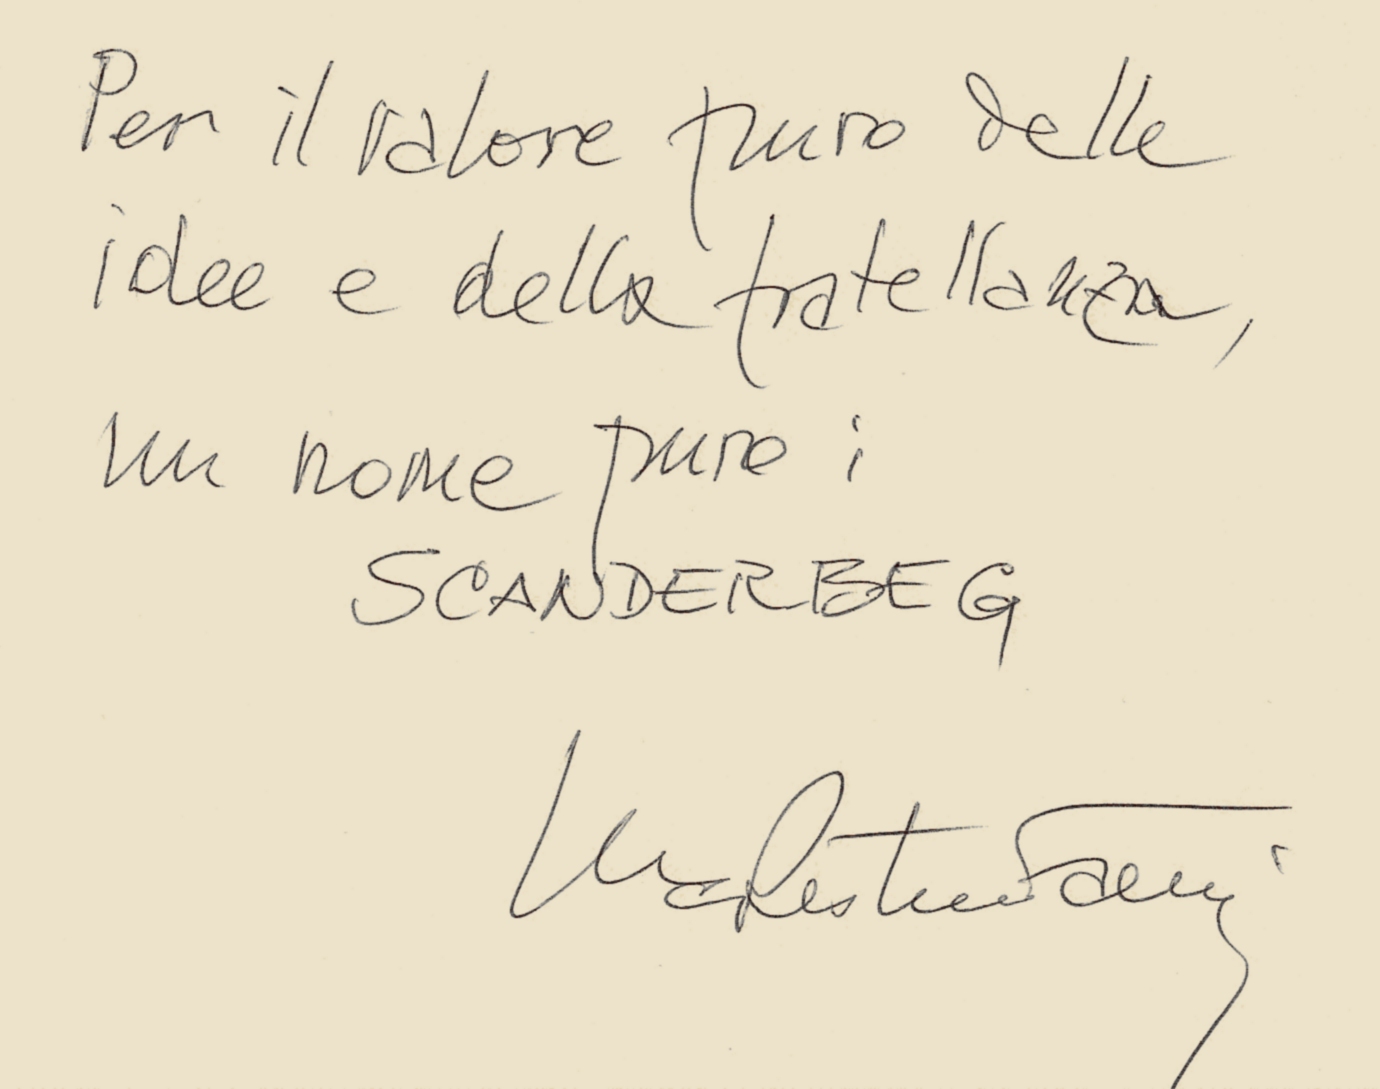 Per il valore puro delle
idee e della fratellanza,
un nome puro i
SCANDERBEG